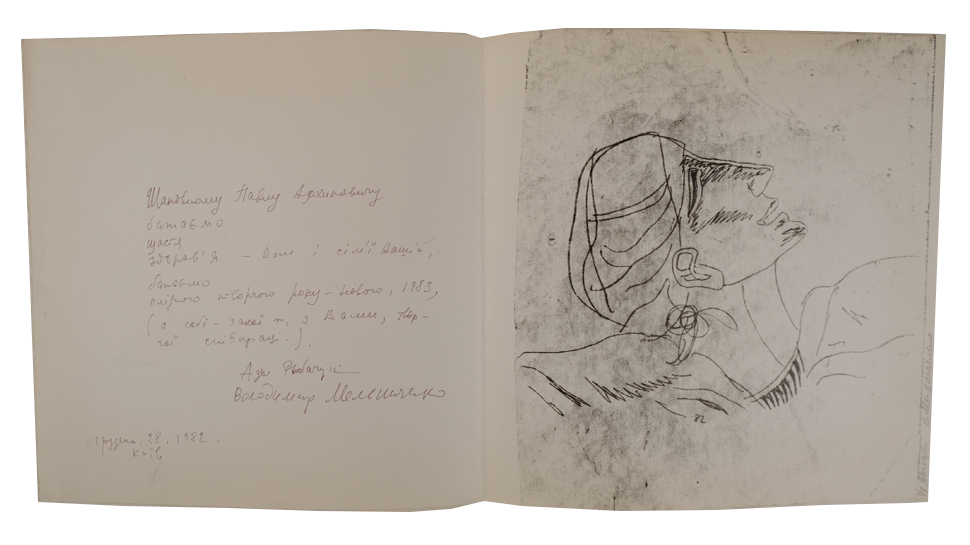 Шановному Павлу Архиповичу
бажаємо
щастя
здоров'я – Вам і сім'ї Вашій, –
бажаємо
плідного творчого року – Нового, 1983,
(а собі – такої ж, з Вами, твор-
чої співпраці.).
Ада Рыбачук
Володимир Мельниченко
грудень, 28. 1982.
Київ
82